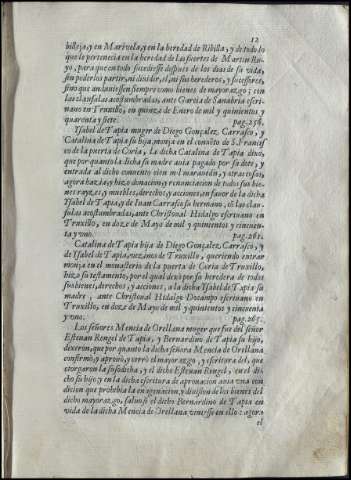 12
billeja, y en Mariuela, y en la heredad de Ribilla, y de todo lo
que le pertenecia en la heredad de las suertes de Martin Ru-
yo, para que en todo sucediesse despues de los dias de su vida,
sin poderlos partir, ni diuidir, el, ni sus herederos, y sucessores,
sino que anduuiessen siempre como bienes de mayorazgo; con
las clausulas acostumbradas, ante Garcia de Sanabria escri-
uano en Truxillo, en quinze de Enero de mil y quinientos y
quarenta y siete. pag.258.
Ysabel de Tapia muger de Diego Gonçalez Carrasco, y
Catalina de Tapia su hija, monja en el conuēto de S. Francis
co de la puerta de Coria, la dicha Catalina de Tapia dixo,
que por quanto la dicha su madre auia pagado por su dote, y
entrada al dicho conuento cien mil marauedis, y otras cosas,
agora hazia, y hizo donacion, y renunciacion de todos sus bie
nes rayzes, y muebles, derechos, y acciones, en fauor de la dicha
Ysabel de Tapia, y de Iuan Carrasco su hermano, cō las clau-
sulas acostumbradas, ante Christoual Hidalgo escriuano en
Truxillo, en doze de Mayo de mil y quinientos y cincuen-
ta y vno. pag.261.
Catalina de Tapia hija de Diego Gonçalez Carrasco, y
de Ysabel de Tapia, vezinos de Truxillo, queriendo entrar
monja en el monasterio de la puerta de Coria de Truxillo,
hizo su testamento, por el qual dexò por su heredera de todos
sus bienes, derechos, y acciones, a la dicha Ysabel de Tapia su
madre, ante Christoual Hidalgo Docampo escriuano en
Truxillo, en doze de Mayo de mil y quinientos y cincuenta
y vno. pag.265.
Los señores Mencia de Orellana muger que fue del señor
Esteuan Rengel de Tapia, y Bernardino de Tapia su hijo,
dixeron, que por quanto la dicha señora Mencia de Orellana
confirmò, y aprouò, y cerrò el mayorazgo, y escritura del, que
otorgaron la susodicha, y el dicho Esteuan Rengel, en el di-
cho su hijo; y en la dicha escritura de aprouacion auia vna con
dicion que prohibia la enagenacion, y diuision de los bienes del
dicho mayorazgo, saluo si el dicho Bernardino de Tapia en
vida de la dicha Mencia de Orellana viniesse en ello: agora
el